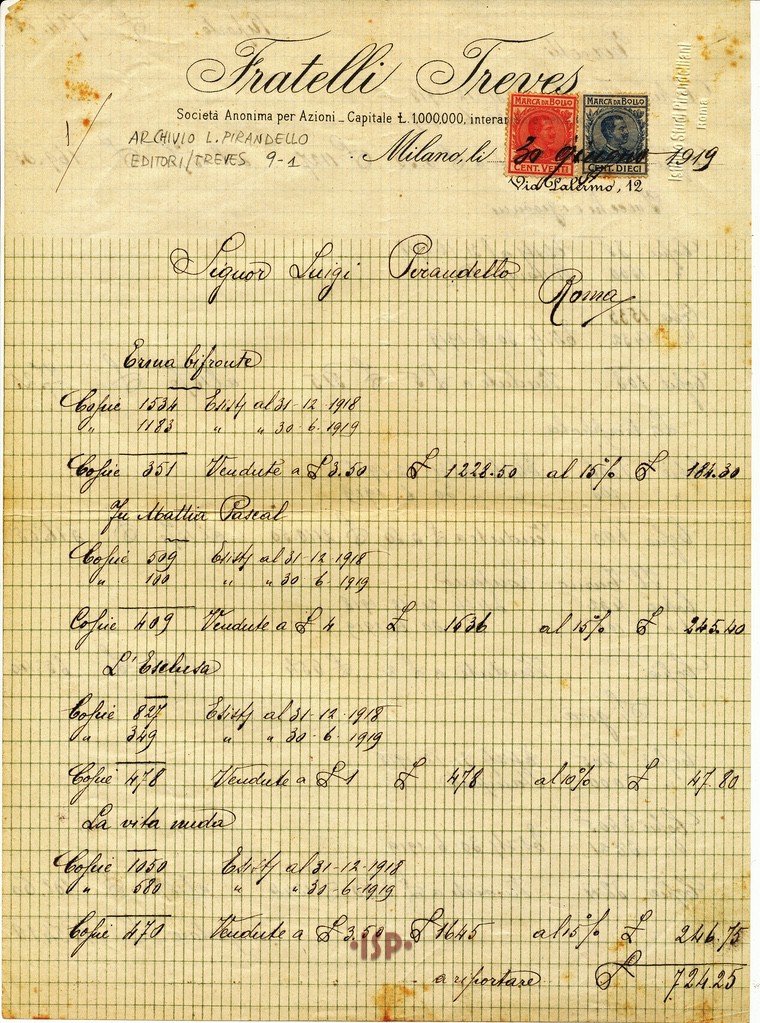 Fratelli Treves
Società Anonima per Azioni - Capitale Ł. 1,000,000, interam
MARCA DA BOLLO
CENT. VENTI
MARCA DA BOLLO
CENT. DIECI
1
ARCHIVIO L. PIRANDELLO
EDITORI/TREVES 9-1
Milano, li 30 giugno 1919
Via Palermo, 12
Istituto Studi Pirandelliani
Roma
Signor Luigi Pirandello
Roma
Erma bifronte
Copie 1534 Esist/ al 31-12-1918
" 1183 " " 30-6-1919
Copie 351 Vendute a £ 3.50 £ 1228.50 al 15% £ 184.30
Fu Mattia Pascal
Copie 509 Esist/ al 31-12-1918
" 100 " " 30 6-1919
Copie 409 Vendute a £ 4 £ 1636 al 15% £ 245.40
L'Esclusa
Copie 827 Esist/ al 31-12-1918
" 349 " " 30-6-1919
Copie 478 Vendute a £ 1 £ 478 al 10% £ 47.80
La vita nuda
Copie 1050 Esist/ al 31-12-1918
" 580 " " 30-6-1919
Copie 470 Vendute a £ 3.50 £ 1645 al 15% £ 246.75
•ISP•
a riportare £ 724.25